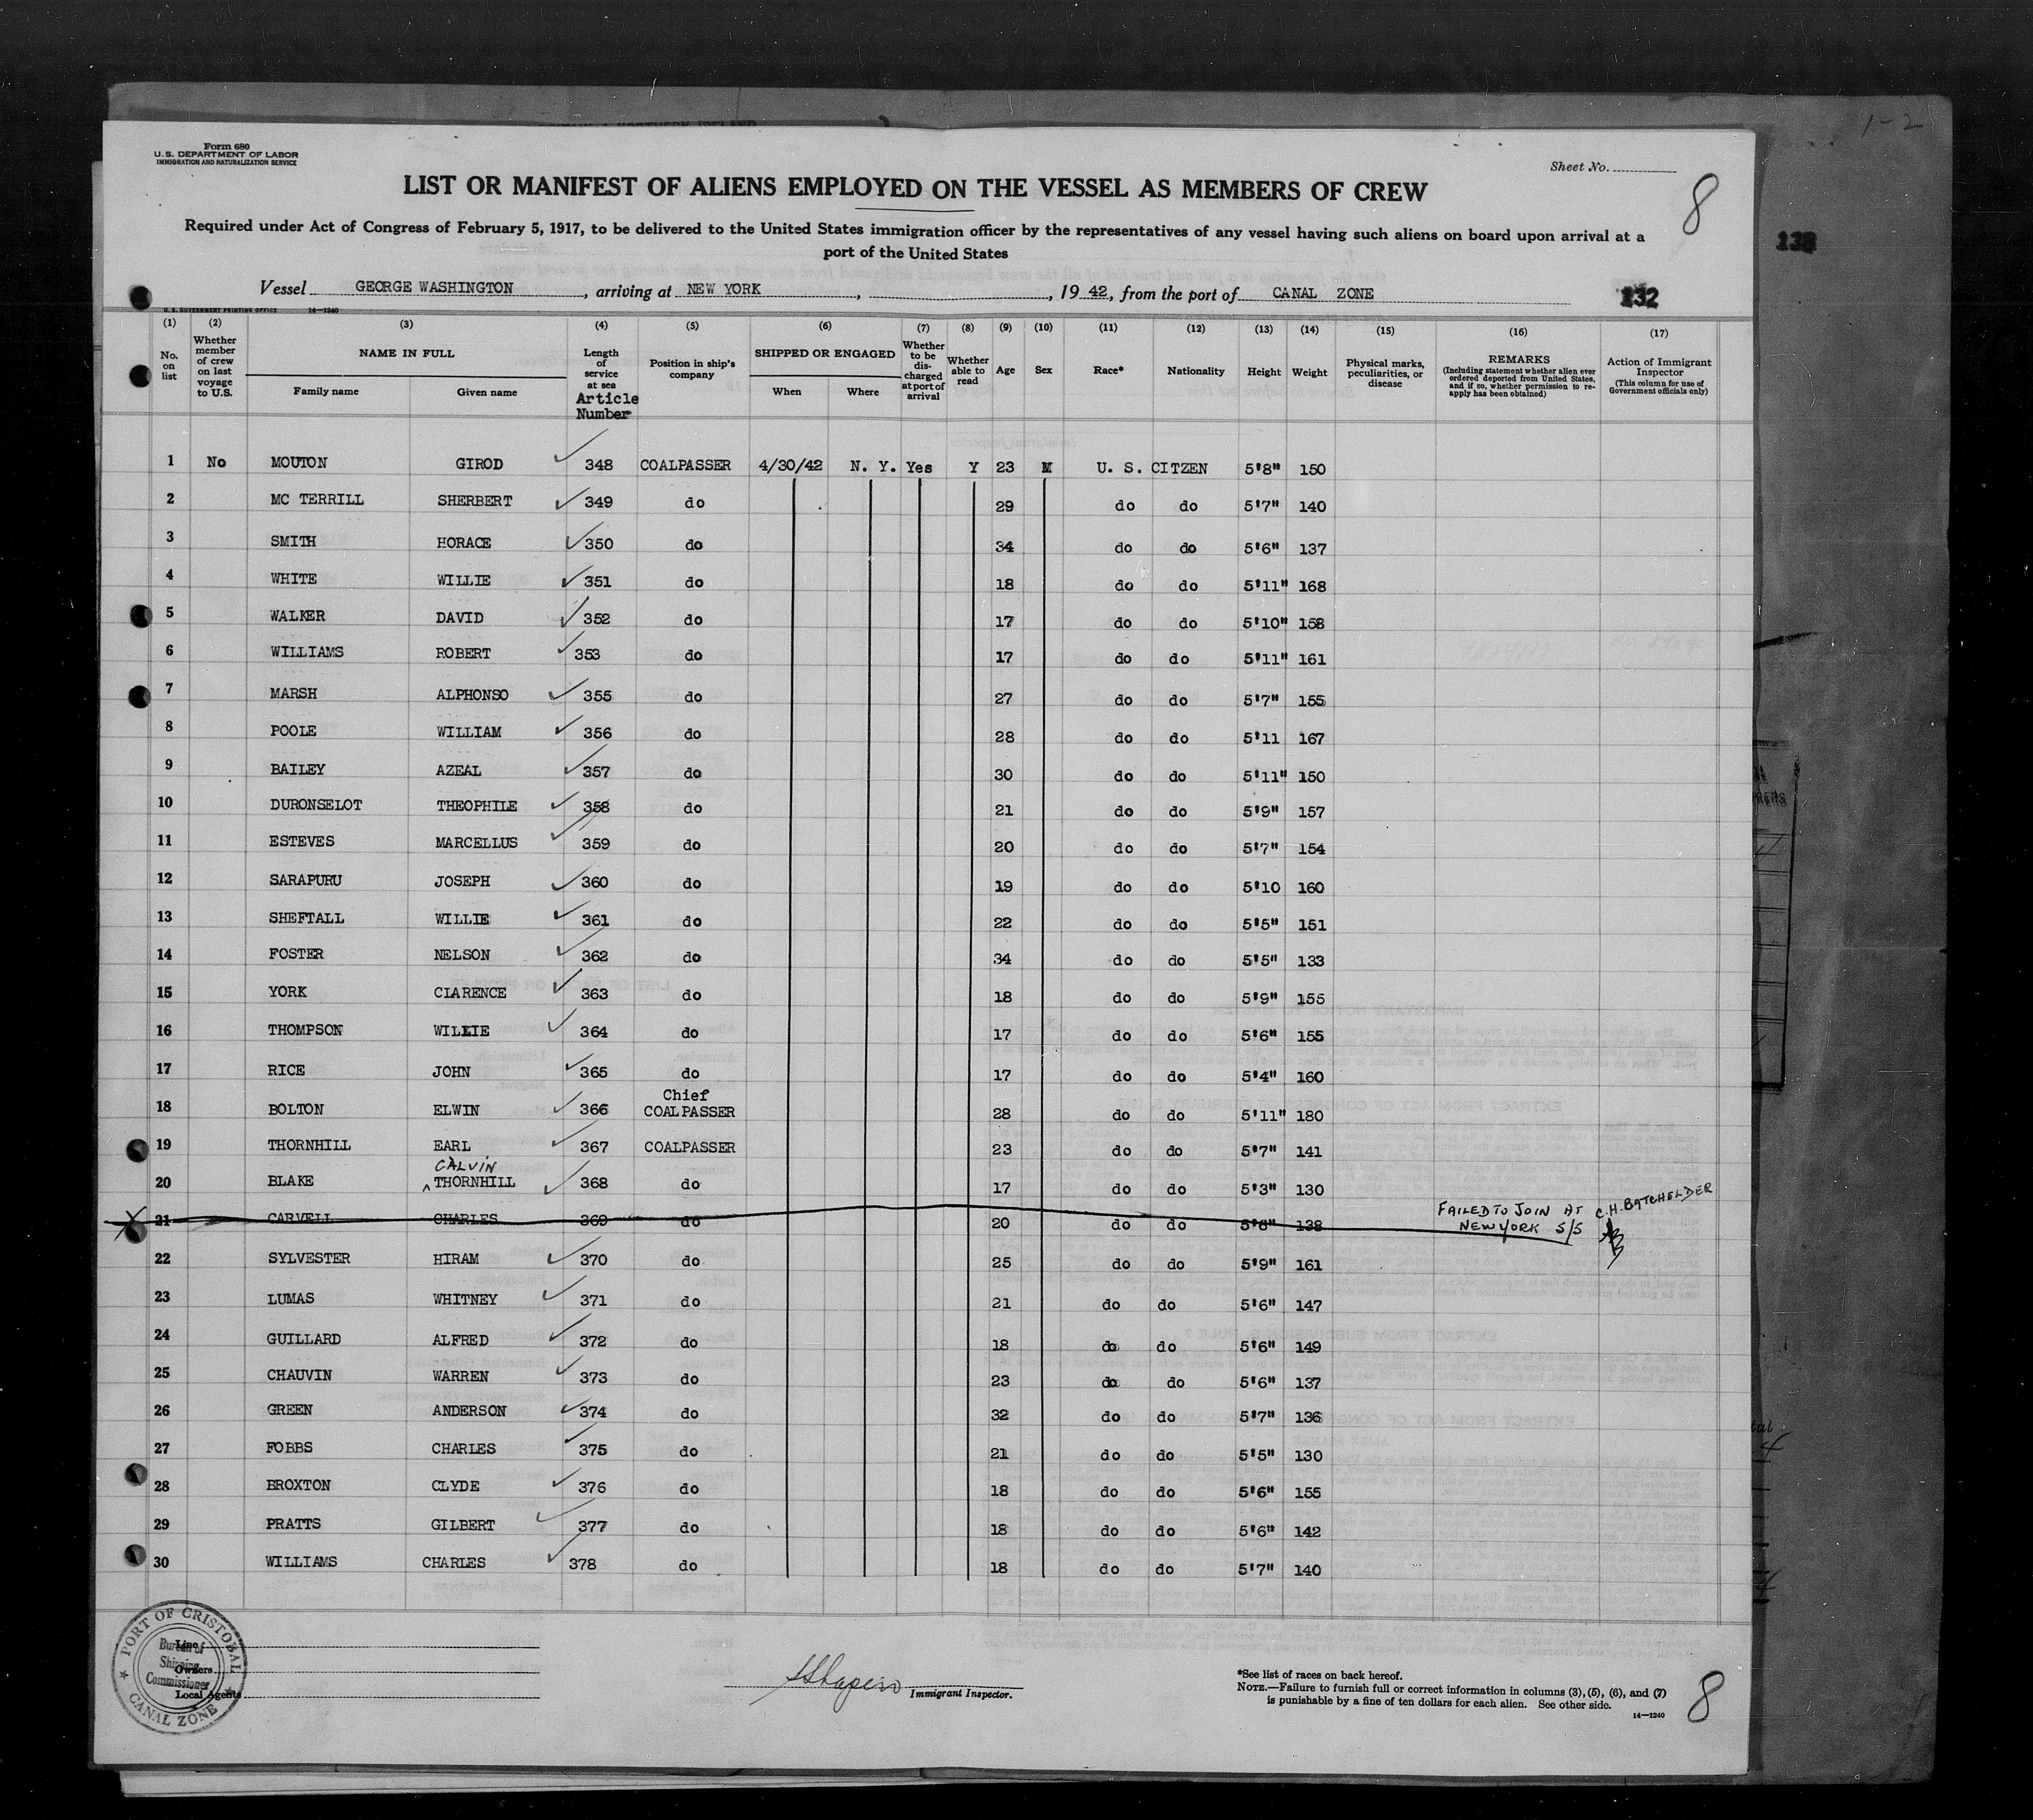 1-2
Form 680
U.S. DEPARTMENT OF LABOR
IMMIGRATION AND NATURALIZATION SERVICE
Sheet No.
LIST OR MANIFEST OF ALIENS EMPLOYED ON THE VESSEL AS MEMBERS OF CREW
8
Required under Act of Congress of February 5, 1917, to be delivered to the United States immigration officer by the representatives of any vessel having such aliens on board upon arrival at a
port of the United States
Vessel GEORGE WASHINGTON, arriving at NEW YORK, , 19 42, from the port of CANAL ZONE
132
U.S. GOVERNMENT PRINTING OFFICE 14-1240
(1) (2) (3) (4) (5) (6) (7) (8) (9) (10) (11) (12) (13) (14) (15) (16) (17)
No. on list
Whether member of crew on last voyage to U.S.
NAME IN FULL
Family name Given name
Length of service at sea
Article Number
Position in ship's company
SHIPPED OR ENGAGED
When Where
Whether to be discharged at port of arrival
Whether able to read
Age
Sex
Race*
Nationality
Height
Weight
Physical marks, peculiarities, or disease
REMARKS
(Including statement whether alien ever ordered deported from United States, and if so, whether permission to reapply has been obtained)
Action of Immigrant Inspector
(This column for use of Government officials only)
1 No MOUTON GIROD 348 COALPASSER 4/30/42 N. Y. Yes Y 23 M U. S. CITZEN 5'8" 150
2 MC TERRILL SHERBERT 349 do 29 do do 5'7" 140
3 SMITH HORACE 350 do 34 do do 5'6" 137
4 WHITE WILLIE 351 do 18 do do 5'11" 168
5 WALKER DAVID 352 do 17 do do 5'10" 158
6 WILLIAMS ROBERT 353 do 17 do do 5'11" 161
7 MARSH ALPHONSO 355 do 27 do do 5'7" 155
8 POOLE WILLIAM 356 do 28 do do 5'11 167
9 BAILEY AZEAL 357 do 30 do do 5'11" 150
10 DURONSELOT THEOPHILE 358 do 21 do do 5'9" 157
11 ESTEVES MARCELLUS 359 do 20 do do 5'7" 154
12 SARAPURU JOSEPH 360 do 19 do do 5'10 160
13 SHEFTALL WILLIE 361 do 22 do do 5'5" 151
14 FOSTER NELSON 362 do 34 do do 5'5" 133
15 YORK CLARENCE 363 do 18 do do 5'9" 155
16 THOMPSON WILLIE 364 do 17 do do 5'6" 155
17 RICE JOHN 365 do 17 do do 5'4" 160
18 BOLTON ELWIN 366 Chief COALPASSER 28 do do 5'11" 180
19 THORNHILL EARL 367 COALPASSER 23 do do 5'7" 141
CALVIN
20 BLAKE ^THORNHILL 368 do 17 do do 5'3" 130
X 21 CARVELL CHARLES 369 do 20 do do 5'6" 138 FAILED TO JOIN AT NEW YORK S/S C.H. BATCHELDER
22 SYLVESTER HIRAM 370 do 25 do do 5'9" 161
23 LUMAS WHITNEY 371 do 21 do do 5'6" 147
24 GUILLARD ALFRED 372 do 18 do do 5'6" 149
25 CHAUVIN WARREN 373 do 23 do do 5'6" 137
26 GREEN ANDERSON 374 do 32 do do 5'7" 136
27 FOBBS CHARLES 375 do 21 do do 5'5" 130
28 BROXTON CLYDE 376 do 18 do do 5'6" 155
29 PRATTS GILBERT 377 do 18 do do 5'6" 142
30 WILLIAMS CHARLES 378 do 18 do do 5'7" 140
PORT OF CRISTOBAL
Bureau of
Shipping
Commissioner
CANAL ZONE
Line
Owners
Local Agents
Shapiro Immigrant Inspector.
*See list of races on back hereof.
NOTE.—Failure to furnish full or correct information in columns (3), (5), (6), and (7)
is punishable by a fine of ten dollars for each alien. See other side.
14—1240
8